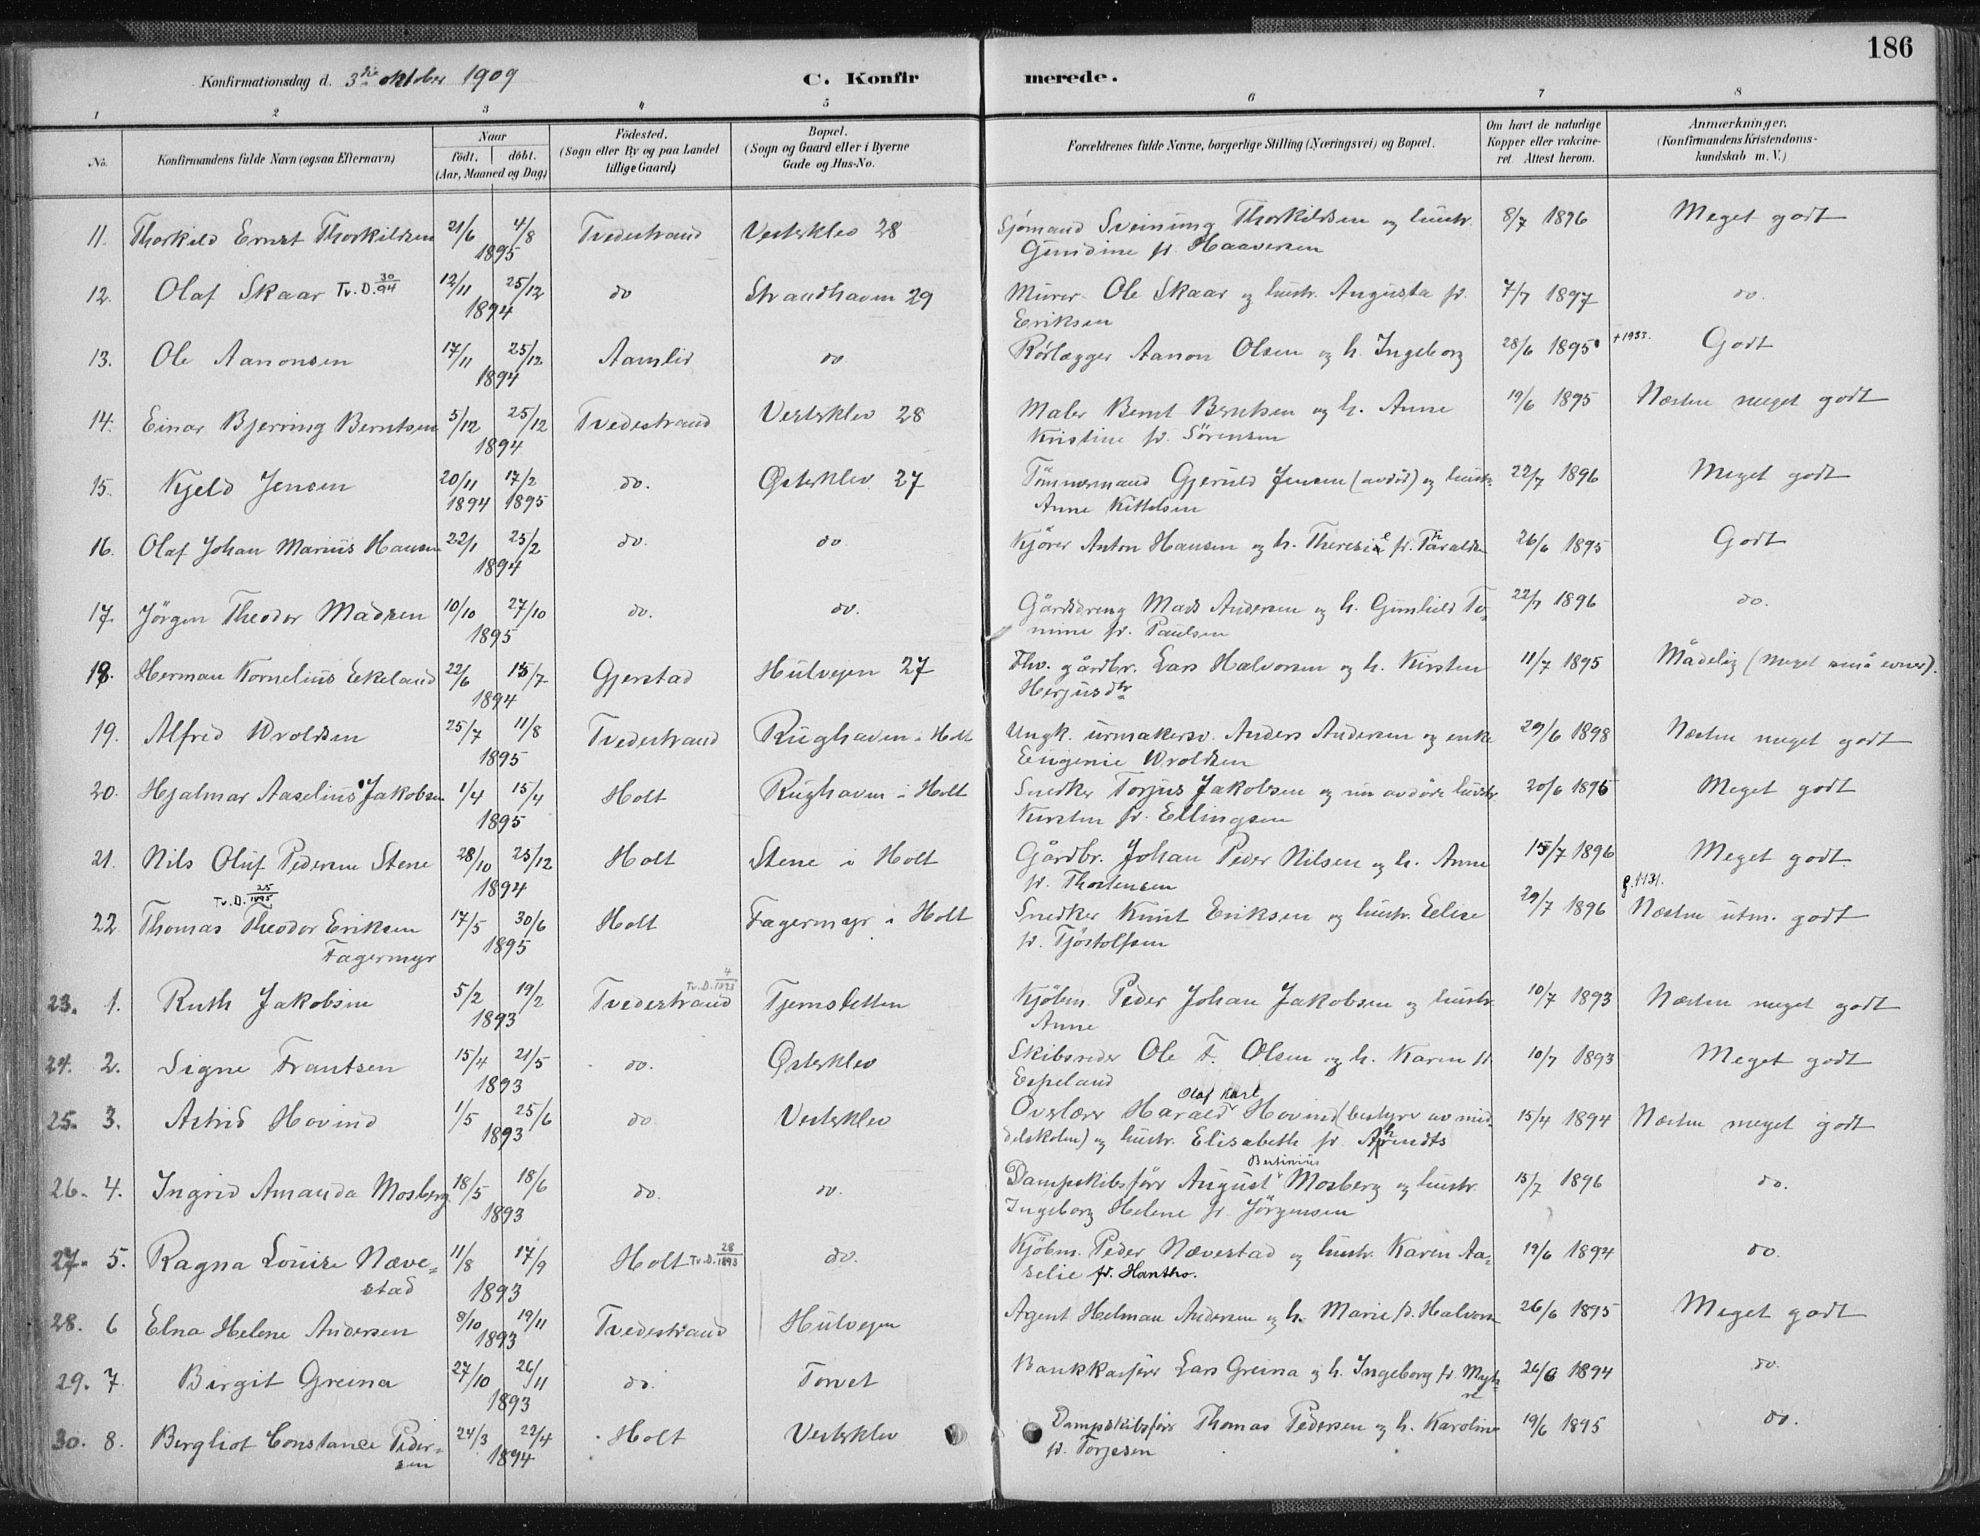 186
Konfirmationsdag d. 3die oktober 1909 C. Konfirmerede.
1 2 3 4 5 6 7 8
No. Konfirmandens fulde Navn (ogsaa Efternavn) Naar födt. döbt. (Aar, Maaned og Dag) Födested. (Sogn eller By og paa Landet tillige Gaard) Bopæl. (Sogn og Gaard eller i Byerne Gade og Hus-No. Forældrenes fulde Navne, borgerlige Stilling (Næringsvei) og Bopæl. Om havt de naturlige Kopper eller vakcineret. Attest herom. Anmærkninger. (Konfirmandens Kristendomskundskab m. V.)
11. Thorkild Ernst Thorkildsen 21/6 4/8 1895 Tvedestrand Vesterklev 28 Sjømand Sveinung Thorkildsen og hustr. 8/7 1896 Meget godt
Gunidine f. Haaversen
12. Olaf Skaar Tv. D. 30/94 12/11 25/12 1894 do Strandhaven 29 Murer Ole Skaar og hustr. Augusta f. 7/7 1897 do.
Eriksen
13. Ole Aanonsen 17/11 25/12 1894 Aamlid do. Rörlægger Aanon Olsen og h. Ingeborg 28/6 1895 +1953. Godt
14. Einar Bjerring Berntsen 5/12 25/12 1894 Tvedestrand Vesterklev 28 Maler Bernt Berntsen og h. Anne 19/6 1895 Næsten meget godt
Kristine f. Sörensen
15. Kjeld Jensen 20/11 1894 17/2 1895 do. Østerklev 27 Tømmermand Gjeruld Jensen (avdöd) og hustr. 22/7 1896 Meget godt
Anne Kittelsen
16. Olaf Johan Marius Hansen 22/1 25/2 1894 do. do. Kjörer Anton Hansen og h. Therese f. Tharaldsen 26/6 1895 Godt
17. Jörgen Theodor Madsen 10/10 27/10 1895 do. do. Gårdsdreng Mads Andersen og h. Gunhild To- 22/7 1896 do.
mine f. Paulsen
18. Herman Kornelius Eikeland 22/6 15/7 1894 Gjerstad Hulvejen 27 Fhv. gårdbr. Lars Halvorsen og h. Kirsten 11/7 1895 Mådelig (meget små evner).
Herjusdtr
19. Alfred Wroldsen 25/7 11/8 1895 Tvedestrand Rughaven i Holt Ungk. urmakersv. Anders Andersen og enke 29/6 1898 Næsten meget godt
Eugenie Wroldsen
20. Hjalmar Aaselius Jakobsen 1/4 15/4 1895 Holt Rughaven i Holt Snedker Torjus Jakobsen og nu avdöde hustr. 20/6 1896 Meget godt
Kirsten f. Ellingsen
21. Nils Oluf Pedersen Stene 28/10 25/12 1894 Holt Stene i Holt Gårdbr. Johan Peder Nilsen og h. Anne 15/7 1896 Meget godt.
f. Thorstensen
Tv. D. 25/1895
22 Thomas Theodor Eriksen 17/5 30/6 1895 Holt Fagermyr i Holt Snedker Knut Eriksen og hustr. Elise 29/7 1896 Næsten utm. godt
Fagermyr f. Tjöstolfsen
23. 1. Ruth Jakobsen 5/2 19/2 1893 Tvedestrand Tjernsletten Kjöbm. Peder Johan Jakobsen og hustr. 10/7 1893 Næsten meget godt
Anne
24. 2. Signe Frantsen 15/4 21/5 1893 do. Østerklev Skibsreder Ole F. Olsen og h. Karen f. 10/7 1893 Meget godt
Espeland
Olaf Karl
25. 3. Astrid Hovind 1/5 25/6 1893 do. Vesterklev Overlærer Harald Hovind (bestyrer av mid- 15/4 1894 Næsten meget godt
delskolen) og hustr. Elisabeth f. Ahrendts
Bertinius
26. 4. Ingrid Amanda Mosberg 18/5 18/6 1893 do. do. Dampskibsförer August Mosberg og hustr. 15/7 1896 do.
Ingeborg Helene f. Jörgensen
27. 5. Ragna Louise Næve- 11/8 17/9 1893 Holt Tv. D. 28/1893 do. Kjöbm. Peder Nævestad og hustr. Karen Aa- 19/6 1894 do.
stad selie f. Hantho.
28. 6 Elna Helene Andersen 8/10 19/11 1893 Tvedestrand Hulvejen Agent Helman Andersen og h. Marie f. Halvorsen 26/6 1895 Meget godt
29. 7. Birgit Greina 27/10 26/11 1893 do. Torvet Bankkasserer Lars Greina og h. Ingeborg f. 26/6 1894 do.
30. 8. Bergliot Constance Peder- 24/3 22/4 1894 Holt Vesterklev Dampskibsförer Thomas Pedersen og h. Karoline 19/6 1895 do.
sen f. Torjesen